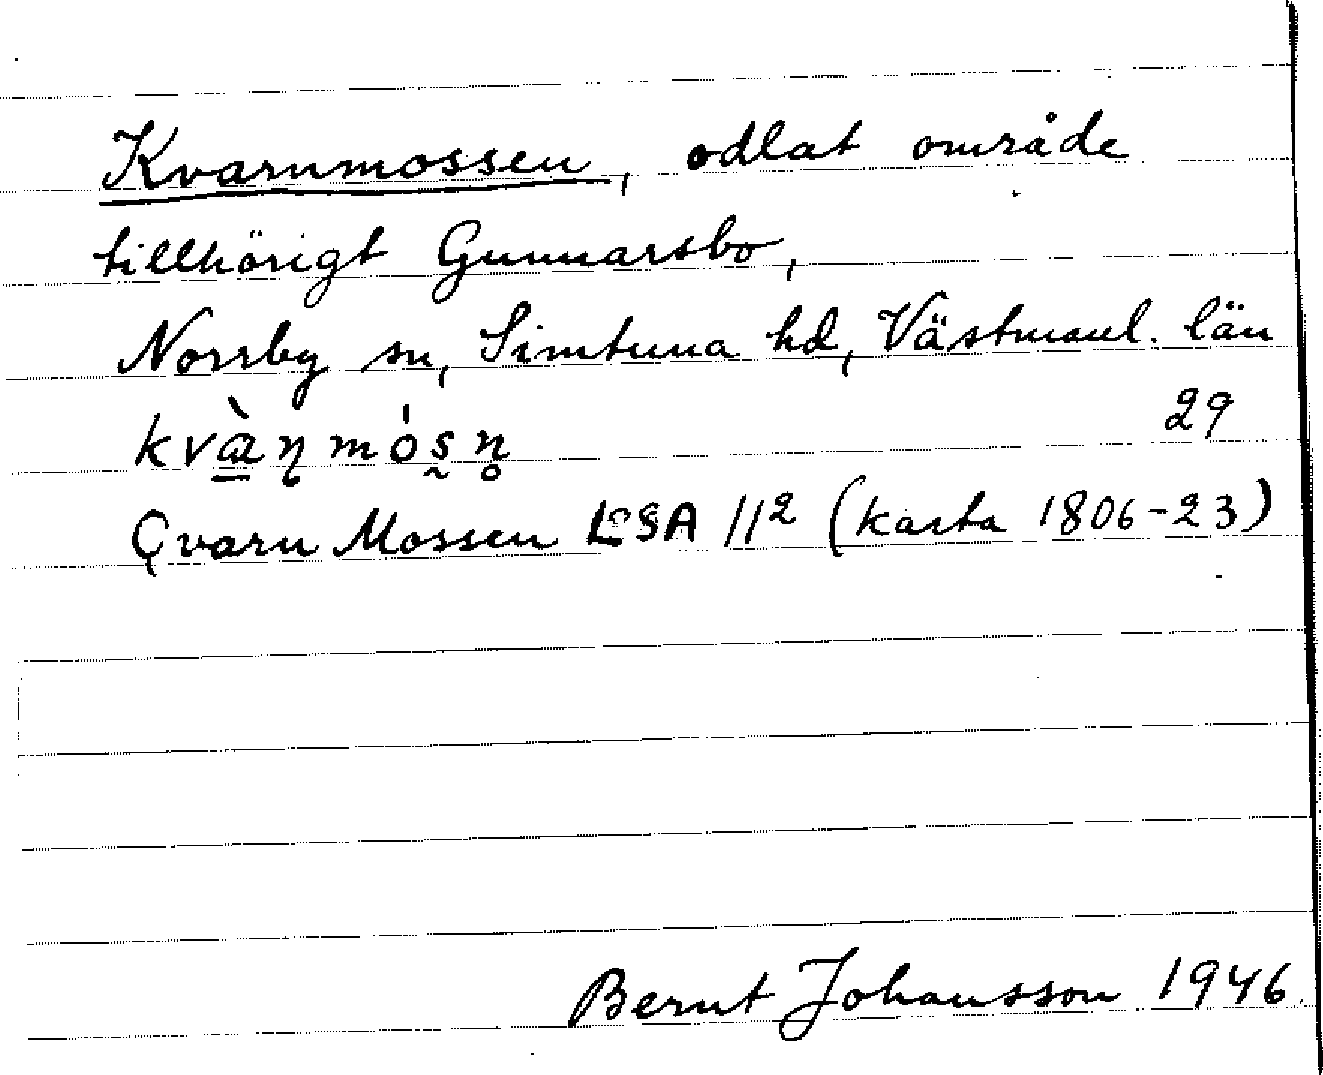 Kvarnmossen, odlat område
tillhörigt Gunnarsbo,
Norrby sn, Simtuna hd, Västmanl. län
kvàɳmós̰n̥ 29
Qvarn Mossen LSA 11² (karta 1806-23)
Bernt Johansson 1946.